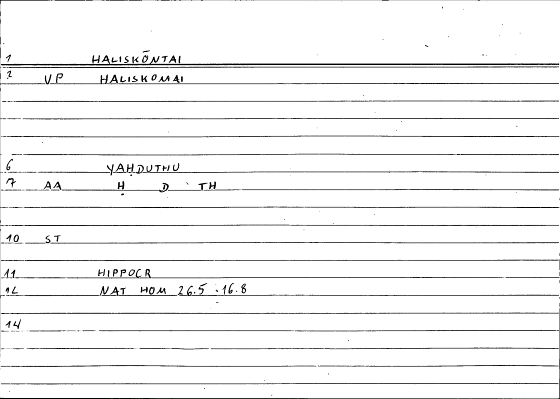 1 HALISKŌNTAI
2 VP HALISKOMAI
6 YAḤDUTHU
7 AA Ḥ D TH
10 ST
11 HIPPOCR
12 NAT HOM 26.5 16.8
14